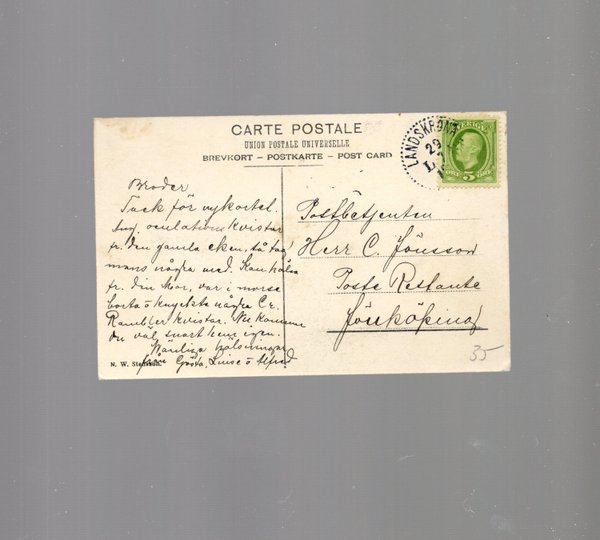 CARTE POSTALE
UNION POSTALE UNIVERSELLE
BREVKORT – POSTKARTE – POST CARD
LANDSKRONA
29
SVERIGE
ÖRE 5 ÖRE
Broder
Tack för vykortet.
oculationskvistar
fr. den gamla eken, så tag
några med. Kan hälsa
fr. din Mor, var i morse
borta o knyckte några Cr.
Rambler kvistar. Nu kommer
du väl snart hem igen.
Vänliga hälsningar
från Gösta, Luise o Alfred
Postbetjenten
Herr C. Jönsson
Poste Restante
Jönköping
N. W.
35